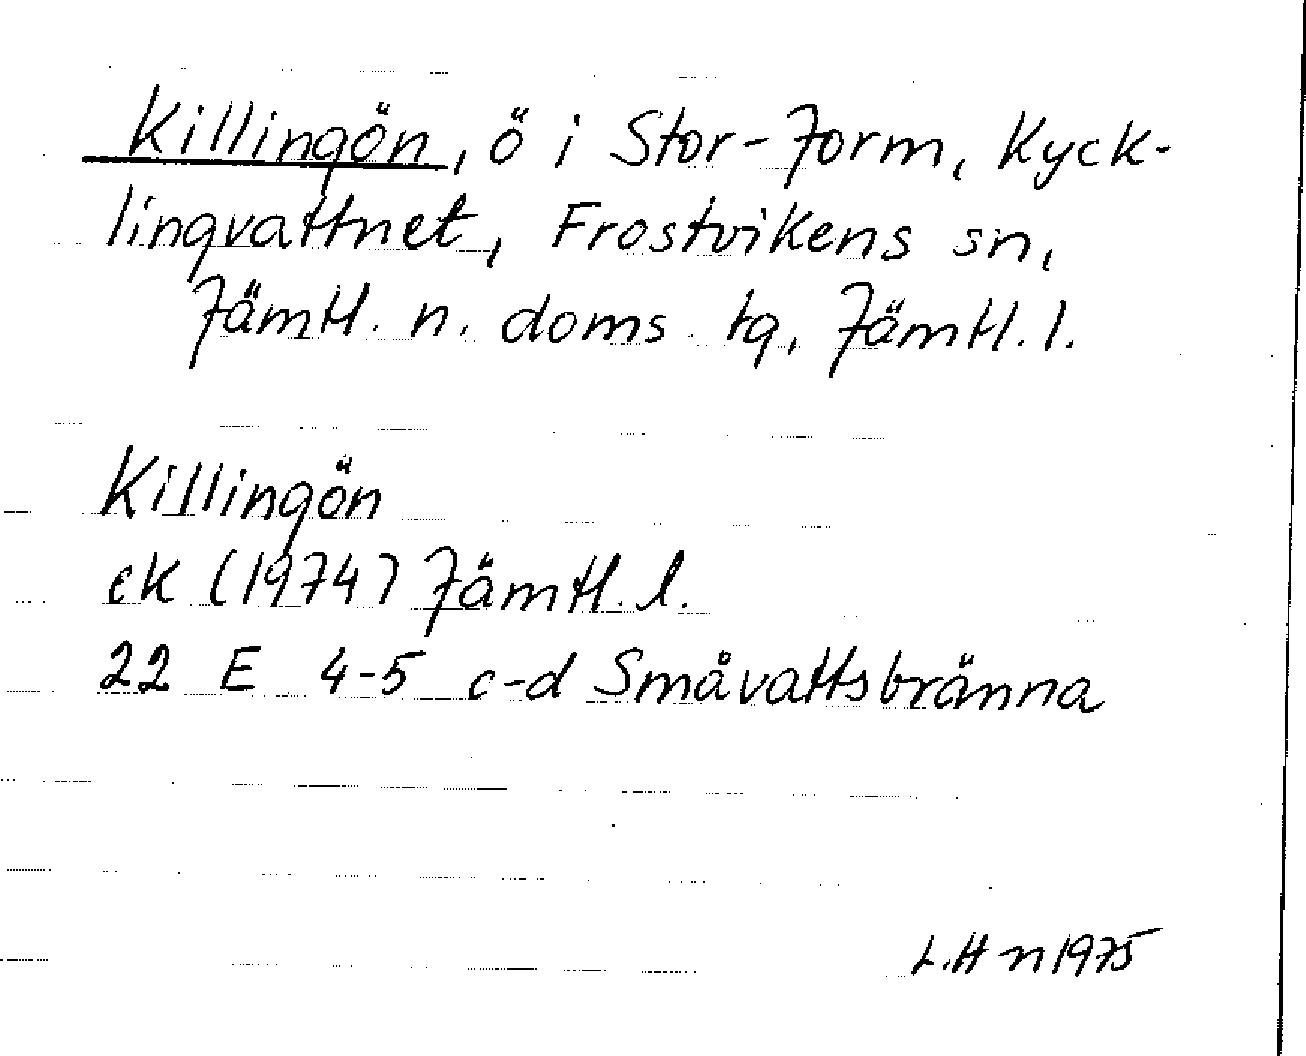 Killingön, ö i Stor-Jorm, Kyck-
lingvattnet, Frostvikens sn,
Jämtl. n. doms. tg, Jämtl. l.
Killingön
ek (1974) Jämtl. l.
22 E 4-5 c-d Småvattsbränna
L.Hn 1975